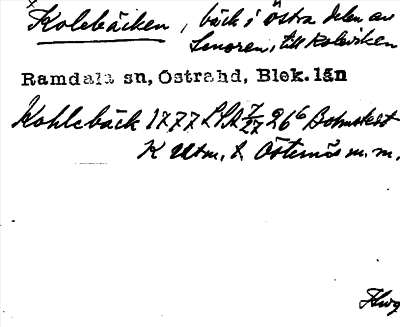 x
Kolebäcken, bäck i östra delen av
Senoren, till Koleviken
Ramdala sn, Östra hd, Blek. län
Kohlebäck 1777 LSA 7/27 26⁶ Bohmslest
K Utm. & Östernäs m. m.
Hwg